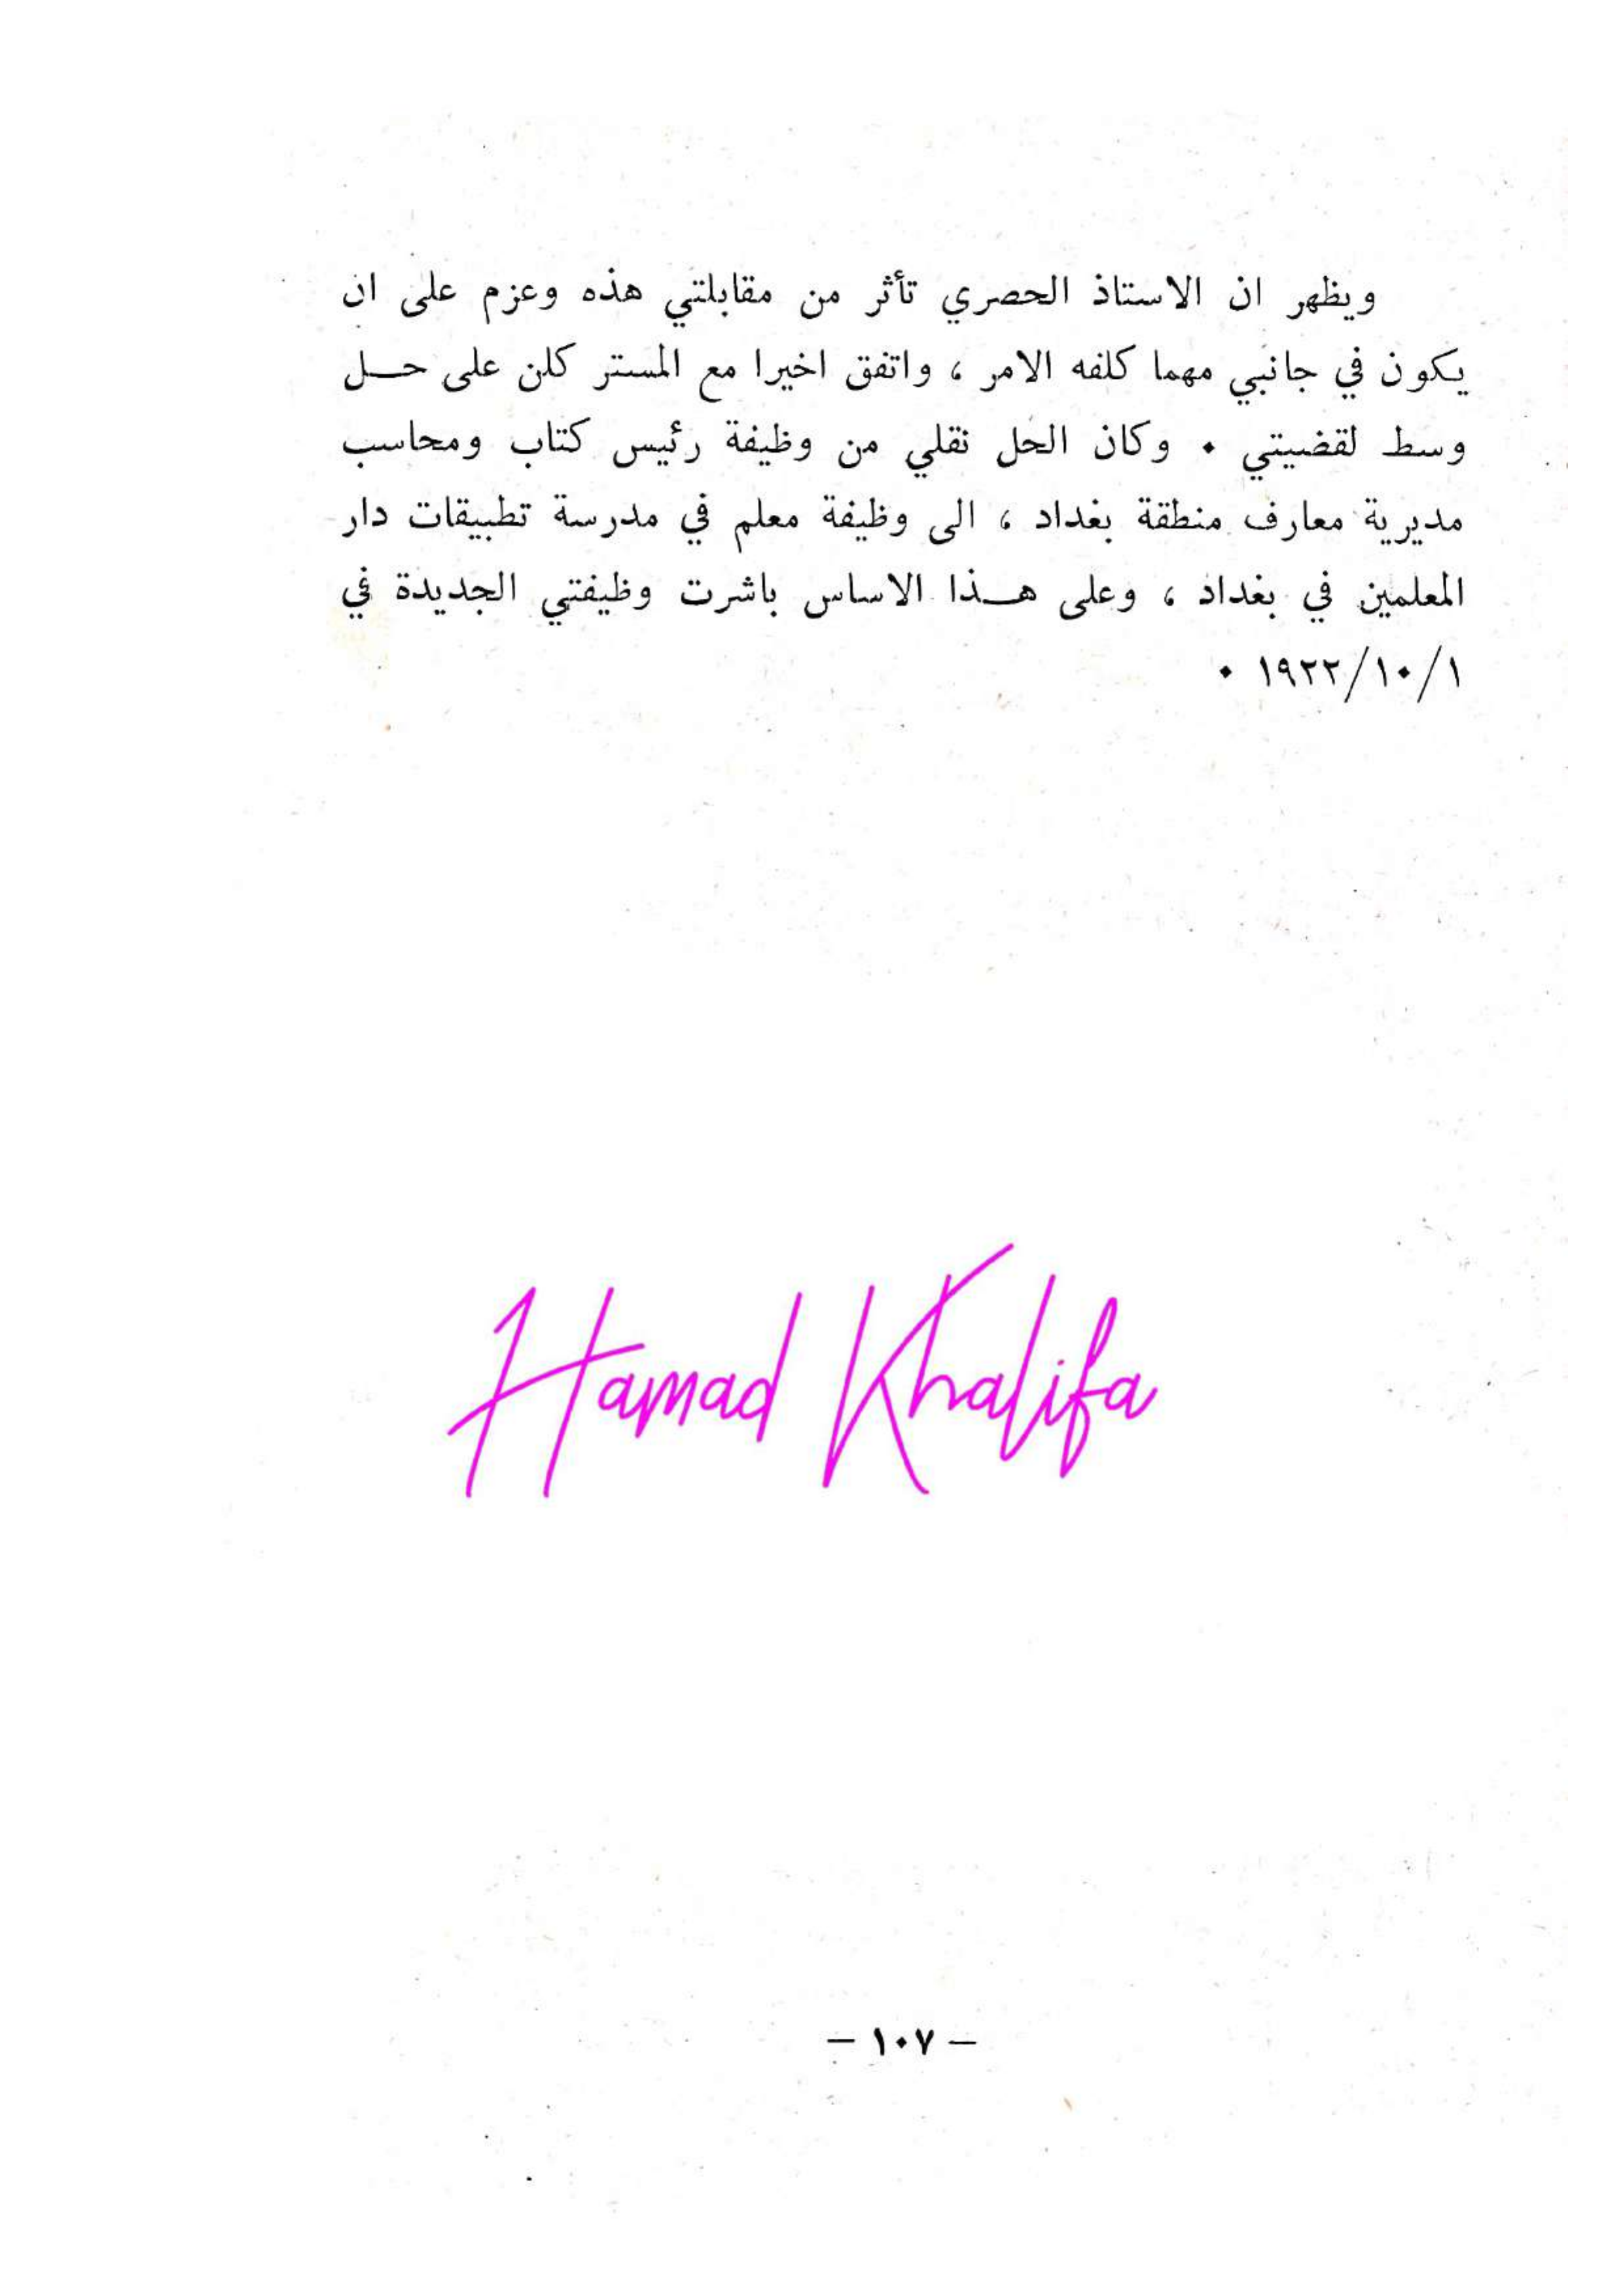 ويظهر ان الاستاذ الحصري تأثر من مقابلتي هذه وعزم على ان
يكون في جانبي مهما كلفه الامر ، واتفق اخيرا مع المستر كلن على حـــل
وسط لقضيتي . وكان الحل نقلي من وظيفة رئيس كتاب ومحاسب
مديرية معارف منطقة بغداد ، الى وظيفة معلم في مدرسة تطبيقات دار
المعلمين في بغداد ، وعلى هـــذا الاساس باشرت وظيفتي الجديدة في
١٩٢٢/١٠/١ .
Hamad Khalifa
— ١٠٧ —